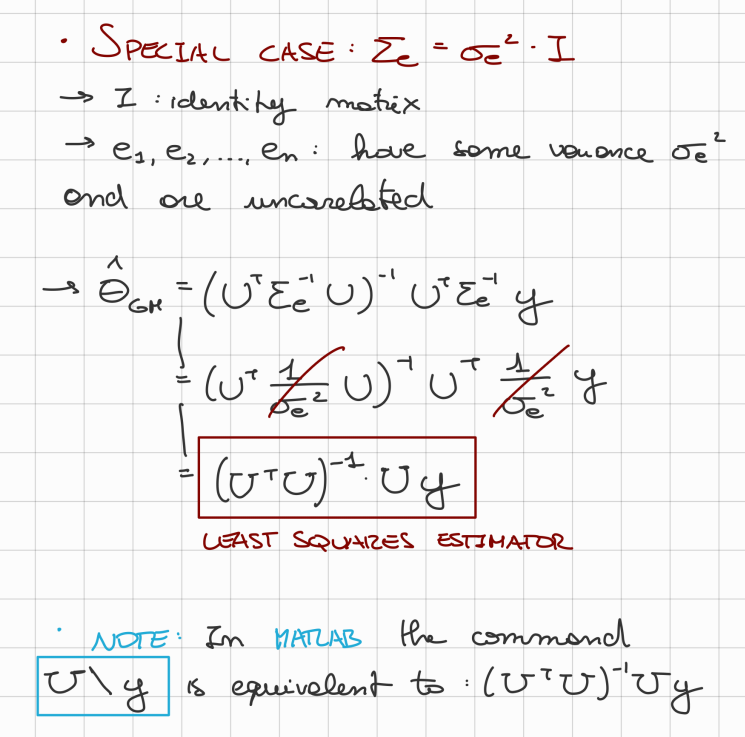 · SPECIAL CASE: Σe = σe² · I
→ I : identity matrix
→ e₁, e₂, ..., en : have same variance σe²
and are uncorrelated
→ Θ̂GM = (UᵀΣe⁻¹U)⁻¹ UᵀΣe⁻¹ y
= (Uᵀ 1/σe² U)⁻¹ Uᵀ 1/σe² y
= (UᵀU)⁻¹· U y
LEAST SQUARES ESTIMATOR
· NOTE: In MATLAB the command
U\y is equivalent to : (UᵀU)⁻¹U y